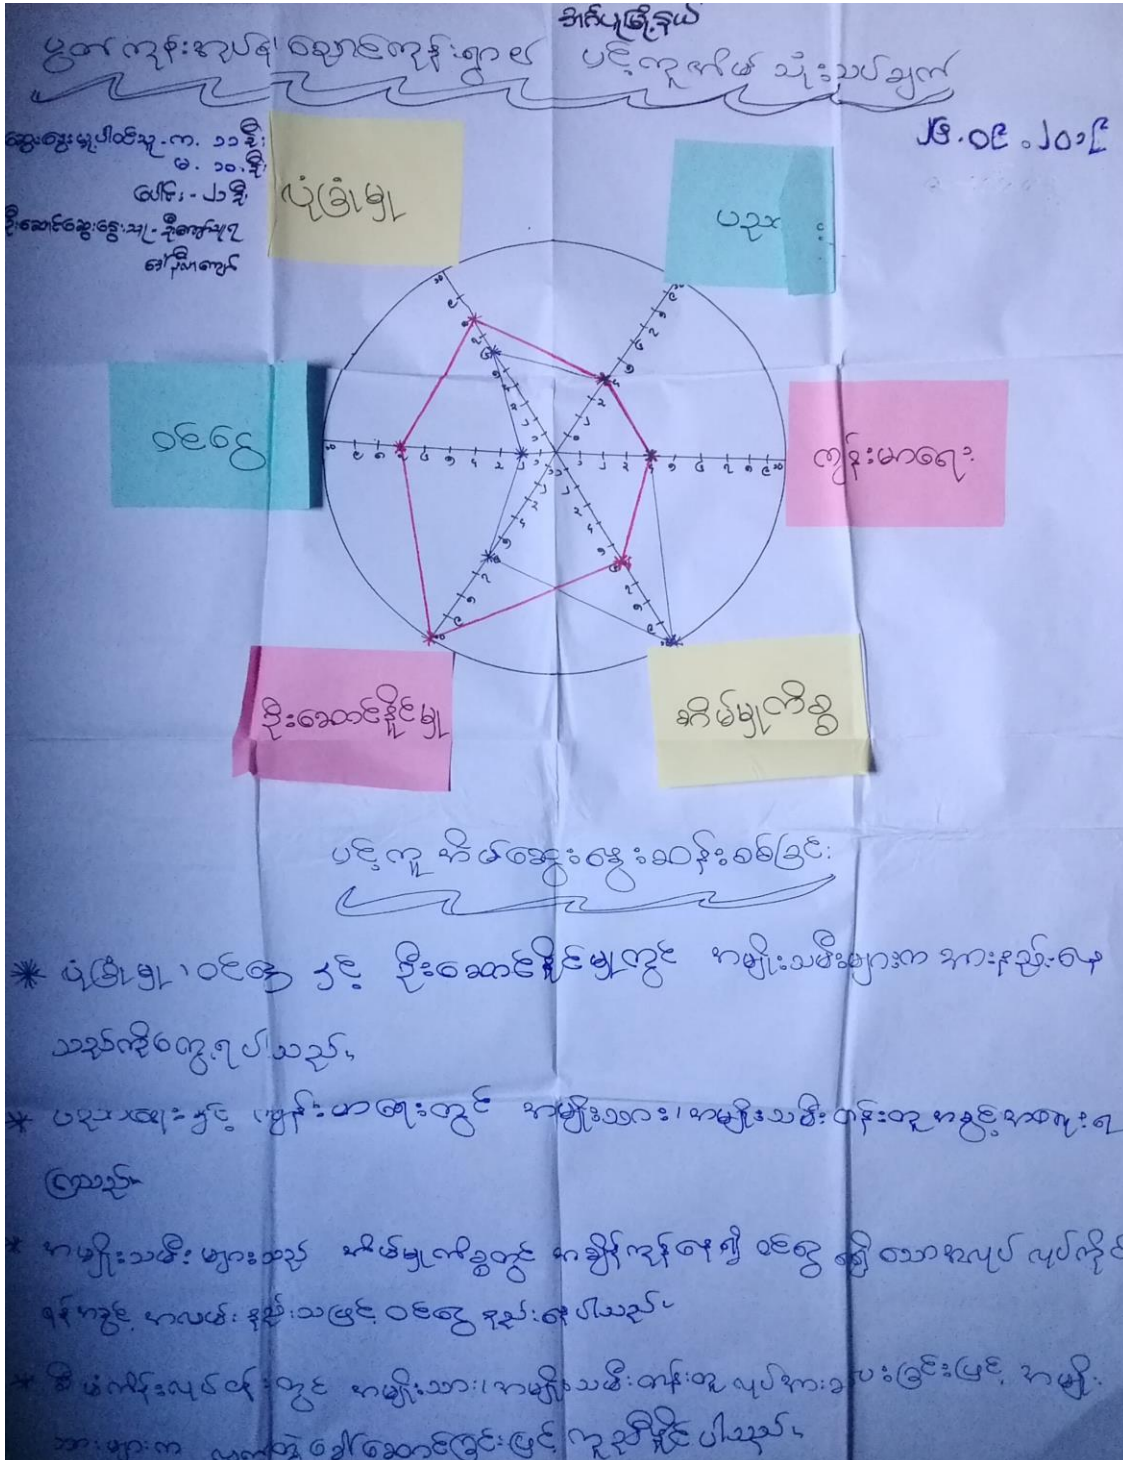 အင်္ဂပူမြို့နယ်
ပင့်ကူအိမ် သုံးသပ်ချက်
၂၆.၀၉.၂၀၁၉
ဆွေးနွေးမှုပါဝင်သူ - က. ၁၁ ဦး
မ. ၁၀ ဦး
ပေါင်း - ၂၁ ဦး
လုံခြုံမှု
ပညာ
ဝင်ငွေ
ကျန်းမာရေး
ဦးဆောင်နိုင်မှု
အိမ်မှုကိစ္စ
ပင့်ကူအိမ်ဆွေးနွေးဆန်းစစ်ခြင်း
* လုံခြုံမှု၊ ဝင်ငွေ နှင့် ဦးဆောင်နိုင်မှုတွင် အမျိုးသမီးများက အားနည်းနေ
သည်ကိုတွေ့ရပါသည်။
* ပညာရေးနှင့် ကျန်းမာရေးတွင် အမျိုးသား၊ အမျိုးသမီးတန်းတူ အခွင့်အရေးရ
ကြသည်။
* အမျိုးသမီးများသည် အိမ်မှုကိစ္စတွင် အချိန်ကုန်နေ၍ ဝင်ငွေ ရရှိသောအလုပ် လုပ်ကိုင်
ရန်အခွင့် အလမ်းနည်းသဖြင့် ဝင်ငွေ နည်းနေပါသည်။
* စီမံကိန်းလုပ်ငန်းတွင် အမျိုးသား၊ အမျိုးသမီးတန်းတူ လုပ်အားခပေးခြင်းဖြင့် အမျိုး
သားများက လက်တွဲခေါ်ဆောင်ခြင်းဖြင့် ကူညီနိုင်ပါသည်။